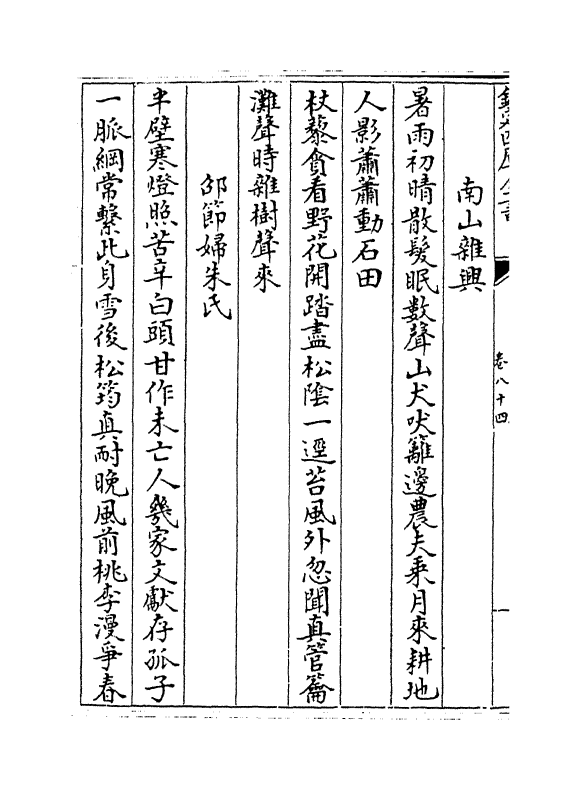 欽定四庫全書
卷八十四
南山雜興
暑雨初晴散髮眠數聲山犬吠籬邊農夫乘月來耕地
人影蕭蕭動石田
杖藜貪看野花開踏盡松陰一逕苔風外忽聞真管籥
灘聲時雜樹聲來
邵節婦朱氏
半壁寒燈照苦辛白頭甘作未亡人幾家文獻存孤子
一脈綱常繫此身雪後松筠真耐晚風前桃李漫爭春